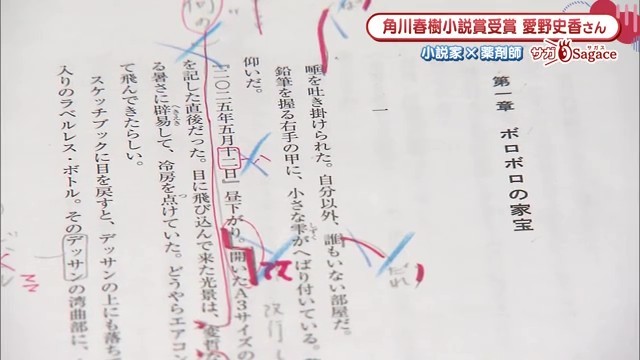 角川春樹小説賞受賞 愛野史香さん
小説家×薬剤師
サガ
サガス
Sagace
第一章 ボロボロの家宝
一
唾を吐き掛けられた。自分以外、誰もいない部屋だ。
鉛筆を握る右手の甲に、小さな雫がへばり付いている。
仰いだ。
『二〇二五年五月十二日』昼下がり。開いたA3サイズの
を記した直後だった。目に飛び込んで来た光景は、変哲
る暑さに辟易して、冷房を点けていた。どうやらエアコン
て飛んできたらしい。
スケッチブックに目を戻すと、デッサンの上にも落ち
入りのラベルレス・ボトル。そのデッサンの湾曲部に、